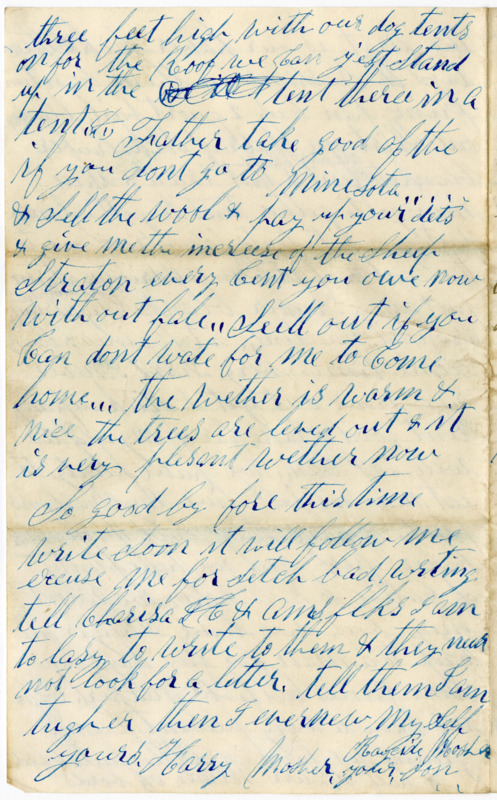 three feet high with our dog tents
on for the Roof we Can jest Stand
up in the tent there in a
tent Father take good of the
if you dont go to Minesota.....
& Sell the wool & pay up your dets
& give me the increese of the Sheep
Straton every Cent you owe now
with out fale.. Sell out if you
Can dont wate for me to Come
home... the wether is warm &
nice the trees are leved out & it
is very plesant wether now
So good by fore this time
write Soon it will follow me
excuse me for Setch bad writing
tell Clarisa & ams flks I am
to lasy to write to them & they
not look for a letter. tell them I am
tugher then I ever new my Self
yours Harry Mosher
Mother, your Son